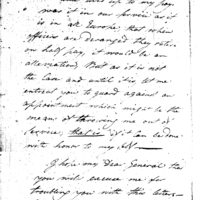 was it in our power as it
is in all Europe that when
officers are deranged they retire
on half pay, it would be an
alleviation. But as it is not
the Case and until it is, let me
entreat you to guard against an
appointment which might be the
means of throwing me out of
Service, that is if I am
with honor to my
I hope my Dear General that
you will excuse me for
troubling you with this letter